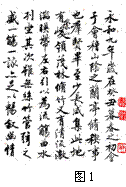 永和九年歲在癸丑暮春之初會
于會稽山陰之蘭亭脩稧事
也群賢畢至少長咸集此地
有崇山峻領茂林脩竹又有清流激
湍暎帶左右引以為流觴曲水
列坐其次雖無絲竹管弦之
盛一觴一詠亦足以暢敘幽情
图1